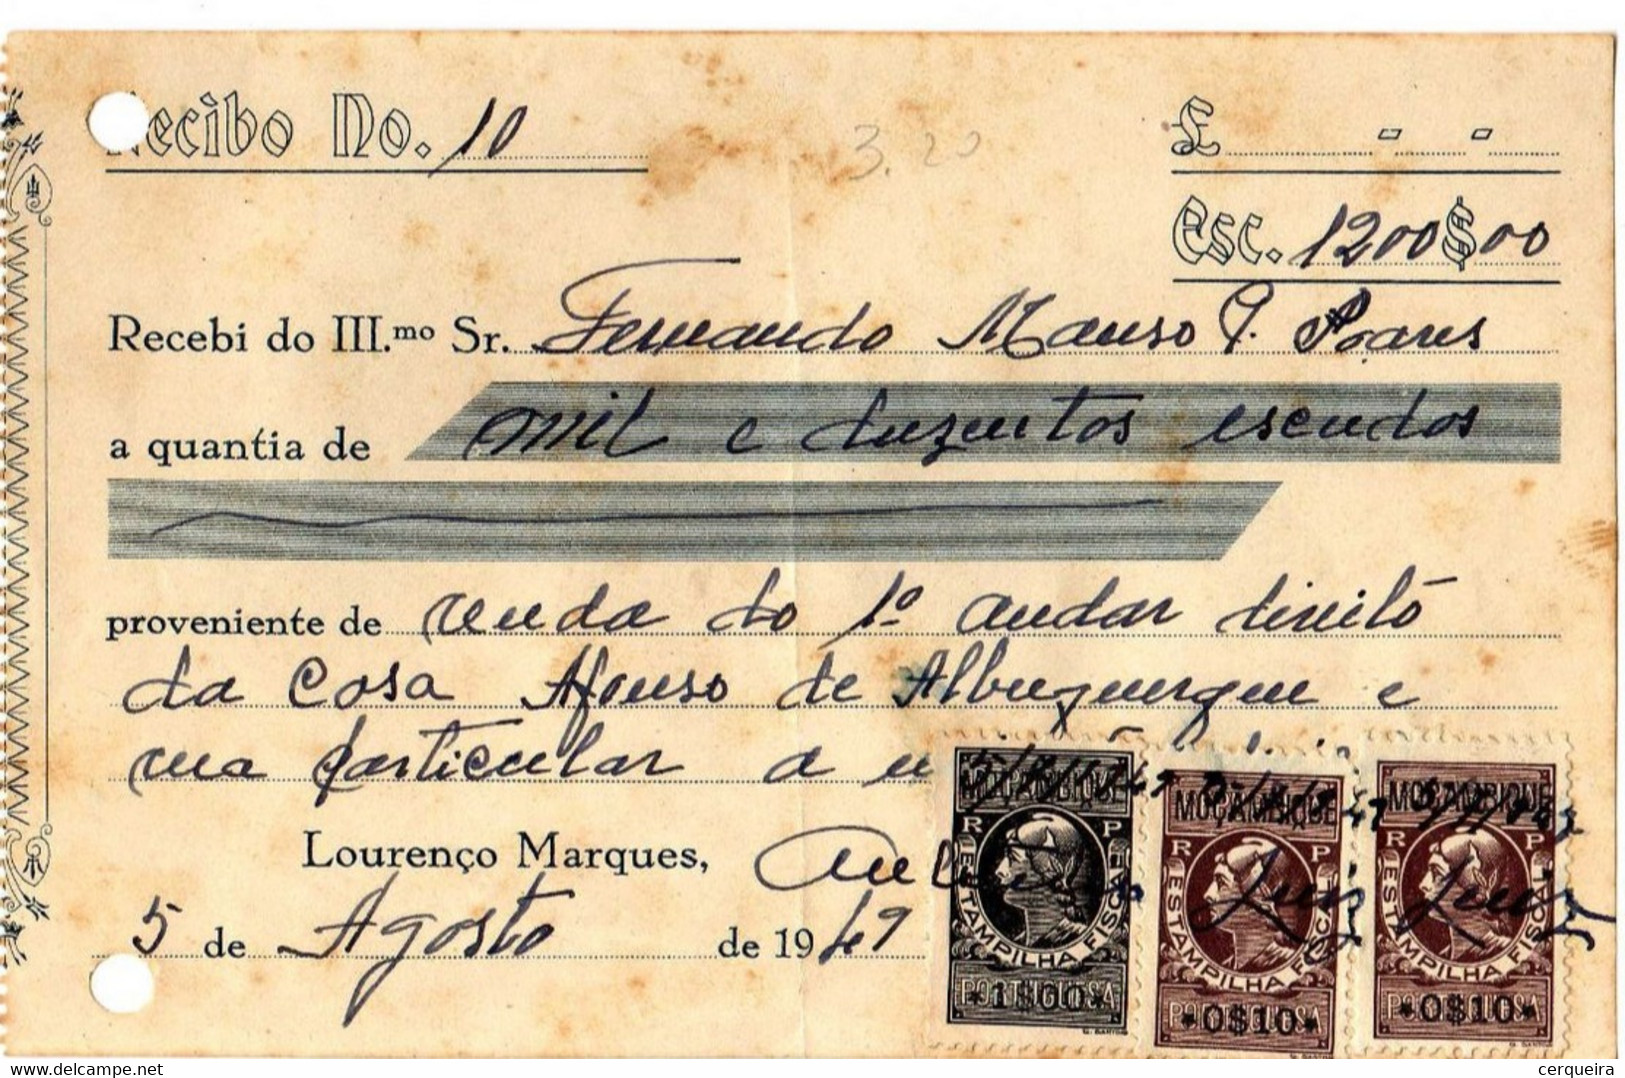 Recibo No. 10
3.20
£ - -
Esc. 1200$00
Recebi do Ill.mo Sr. Fernando Manso P. Soares
a quantia de mil e duzentos escudos
proveniente de renda do 1º andar direito
da Casa Afonso de Albuquerque e
rua particular a
Lourenço Marques,
5 de Agosto de 1947
MOÇAMBIQUE MOÇAMBIQUE MOÇAMBIQUE
R P R P R P
ESTAMPILHA FISCAL ESTAMPILHA FISCAL ESTAMPILHA FISCAL
PORTUGUESA PORTUGUESA PORTUGUESA
*1$00* *0$10* *0$10*
Luiz Luiz
delcampe.net
cerqueira